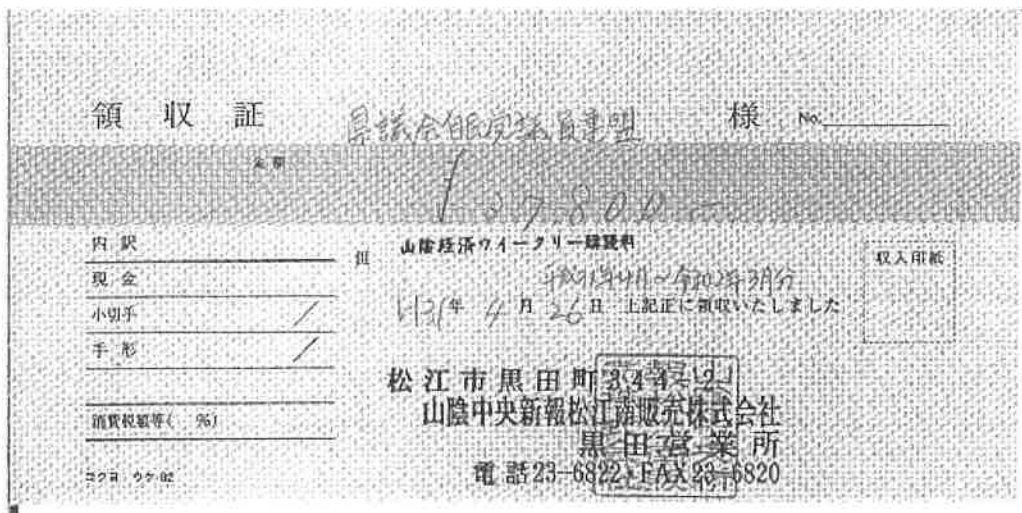 領収証 県議会自民党議員連盟 様 No.
金額
¥37,800-
内訳
現金
小切手
手形
消費税額等( %)
コクヨ ウケ-92
但 山陰経済ウイークリー購読料
平成31年4月~令和02年3月分
H31年 4月 26日 上記正に領収いたしました
収入印紙
松江市黒田町344-2
山陰中央新報松江南販売株式会社
黒田営業所
電話23-6822・FAX23-6820